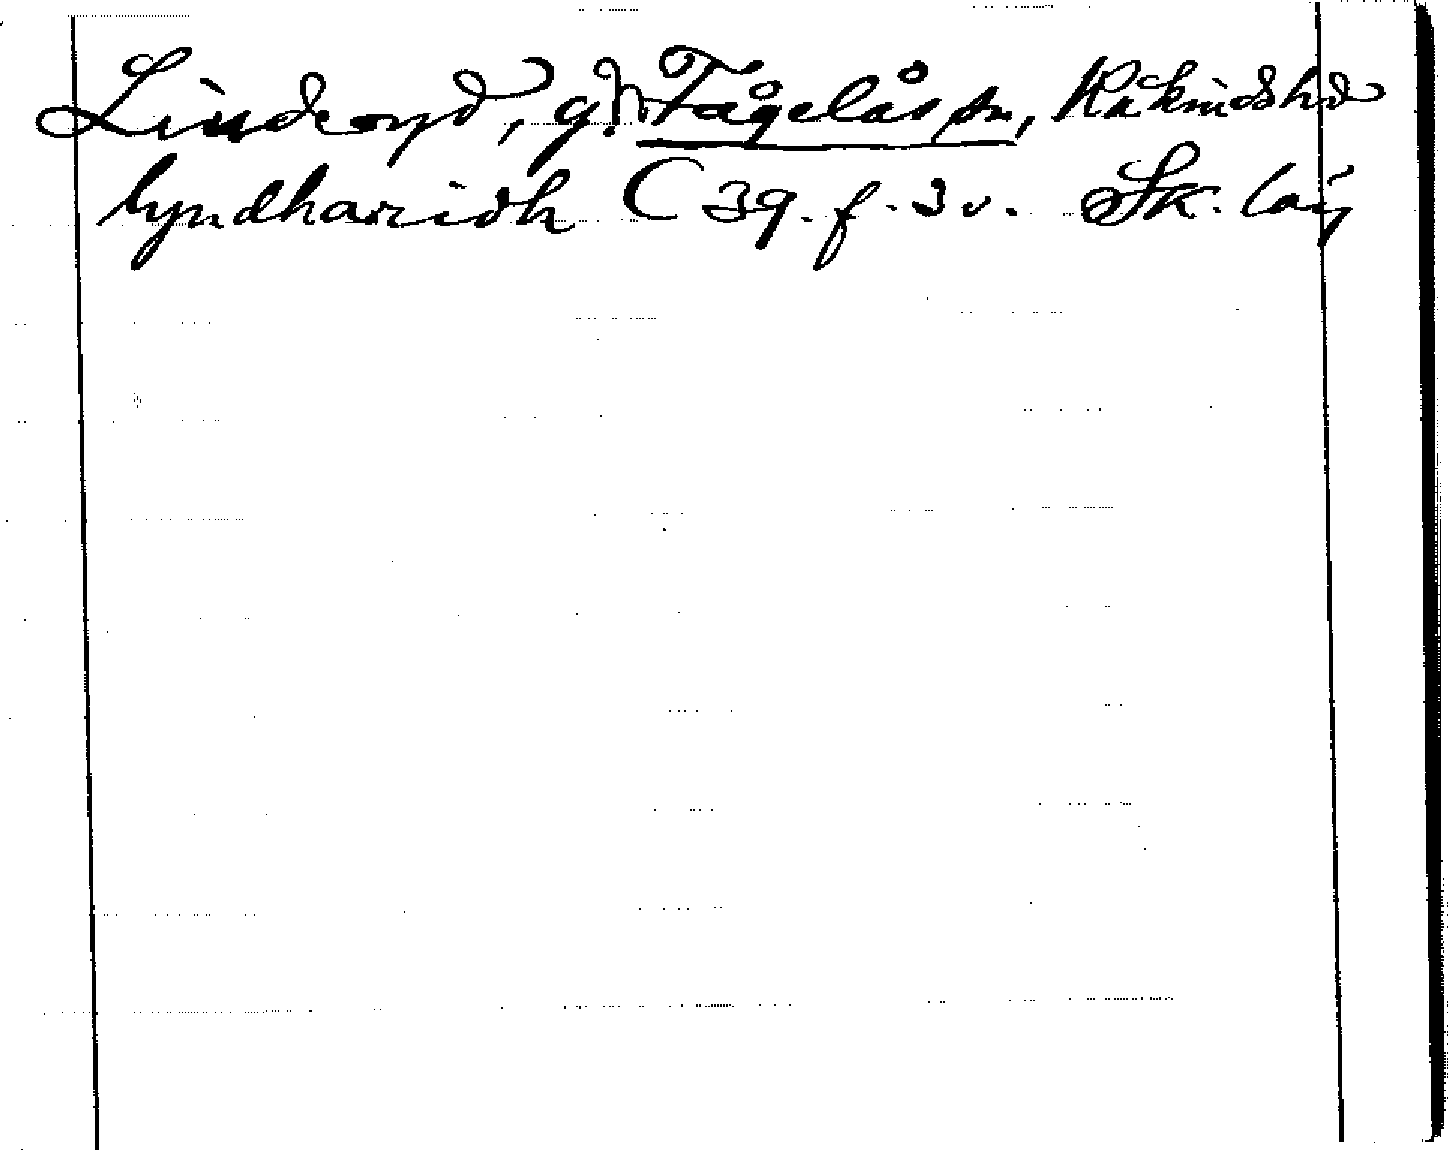 Linderyd, g. Fågelås sn, Kåkinds hd
lyndharidh C 39. f. 3 v. Sk. län